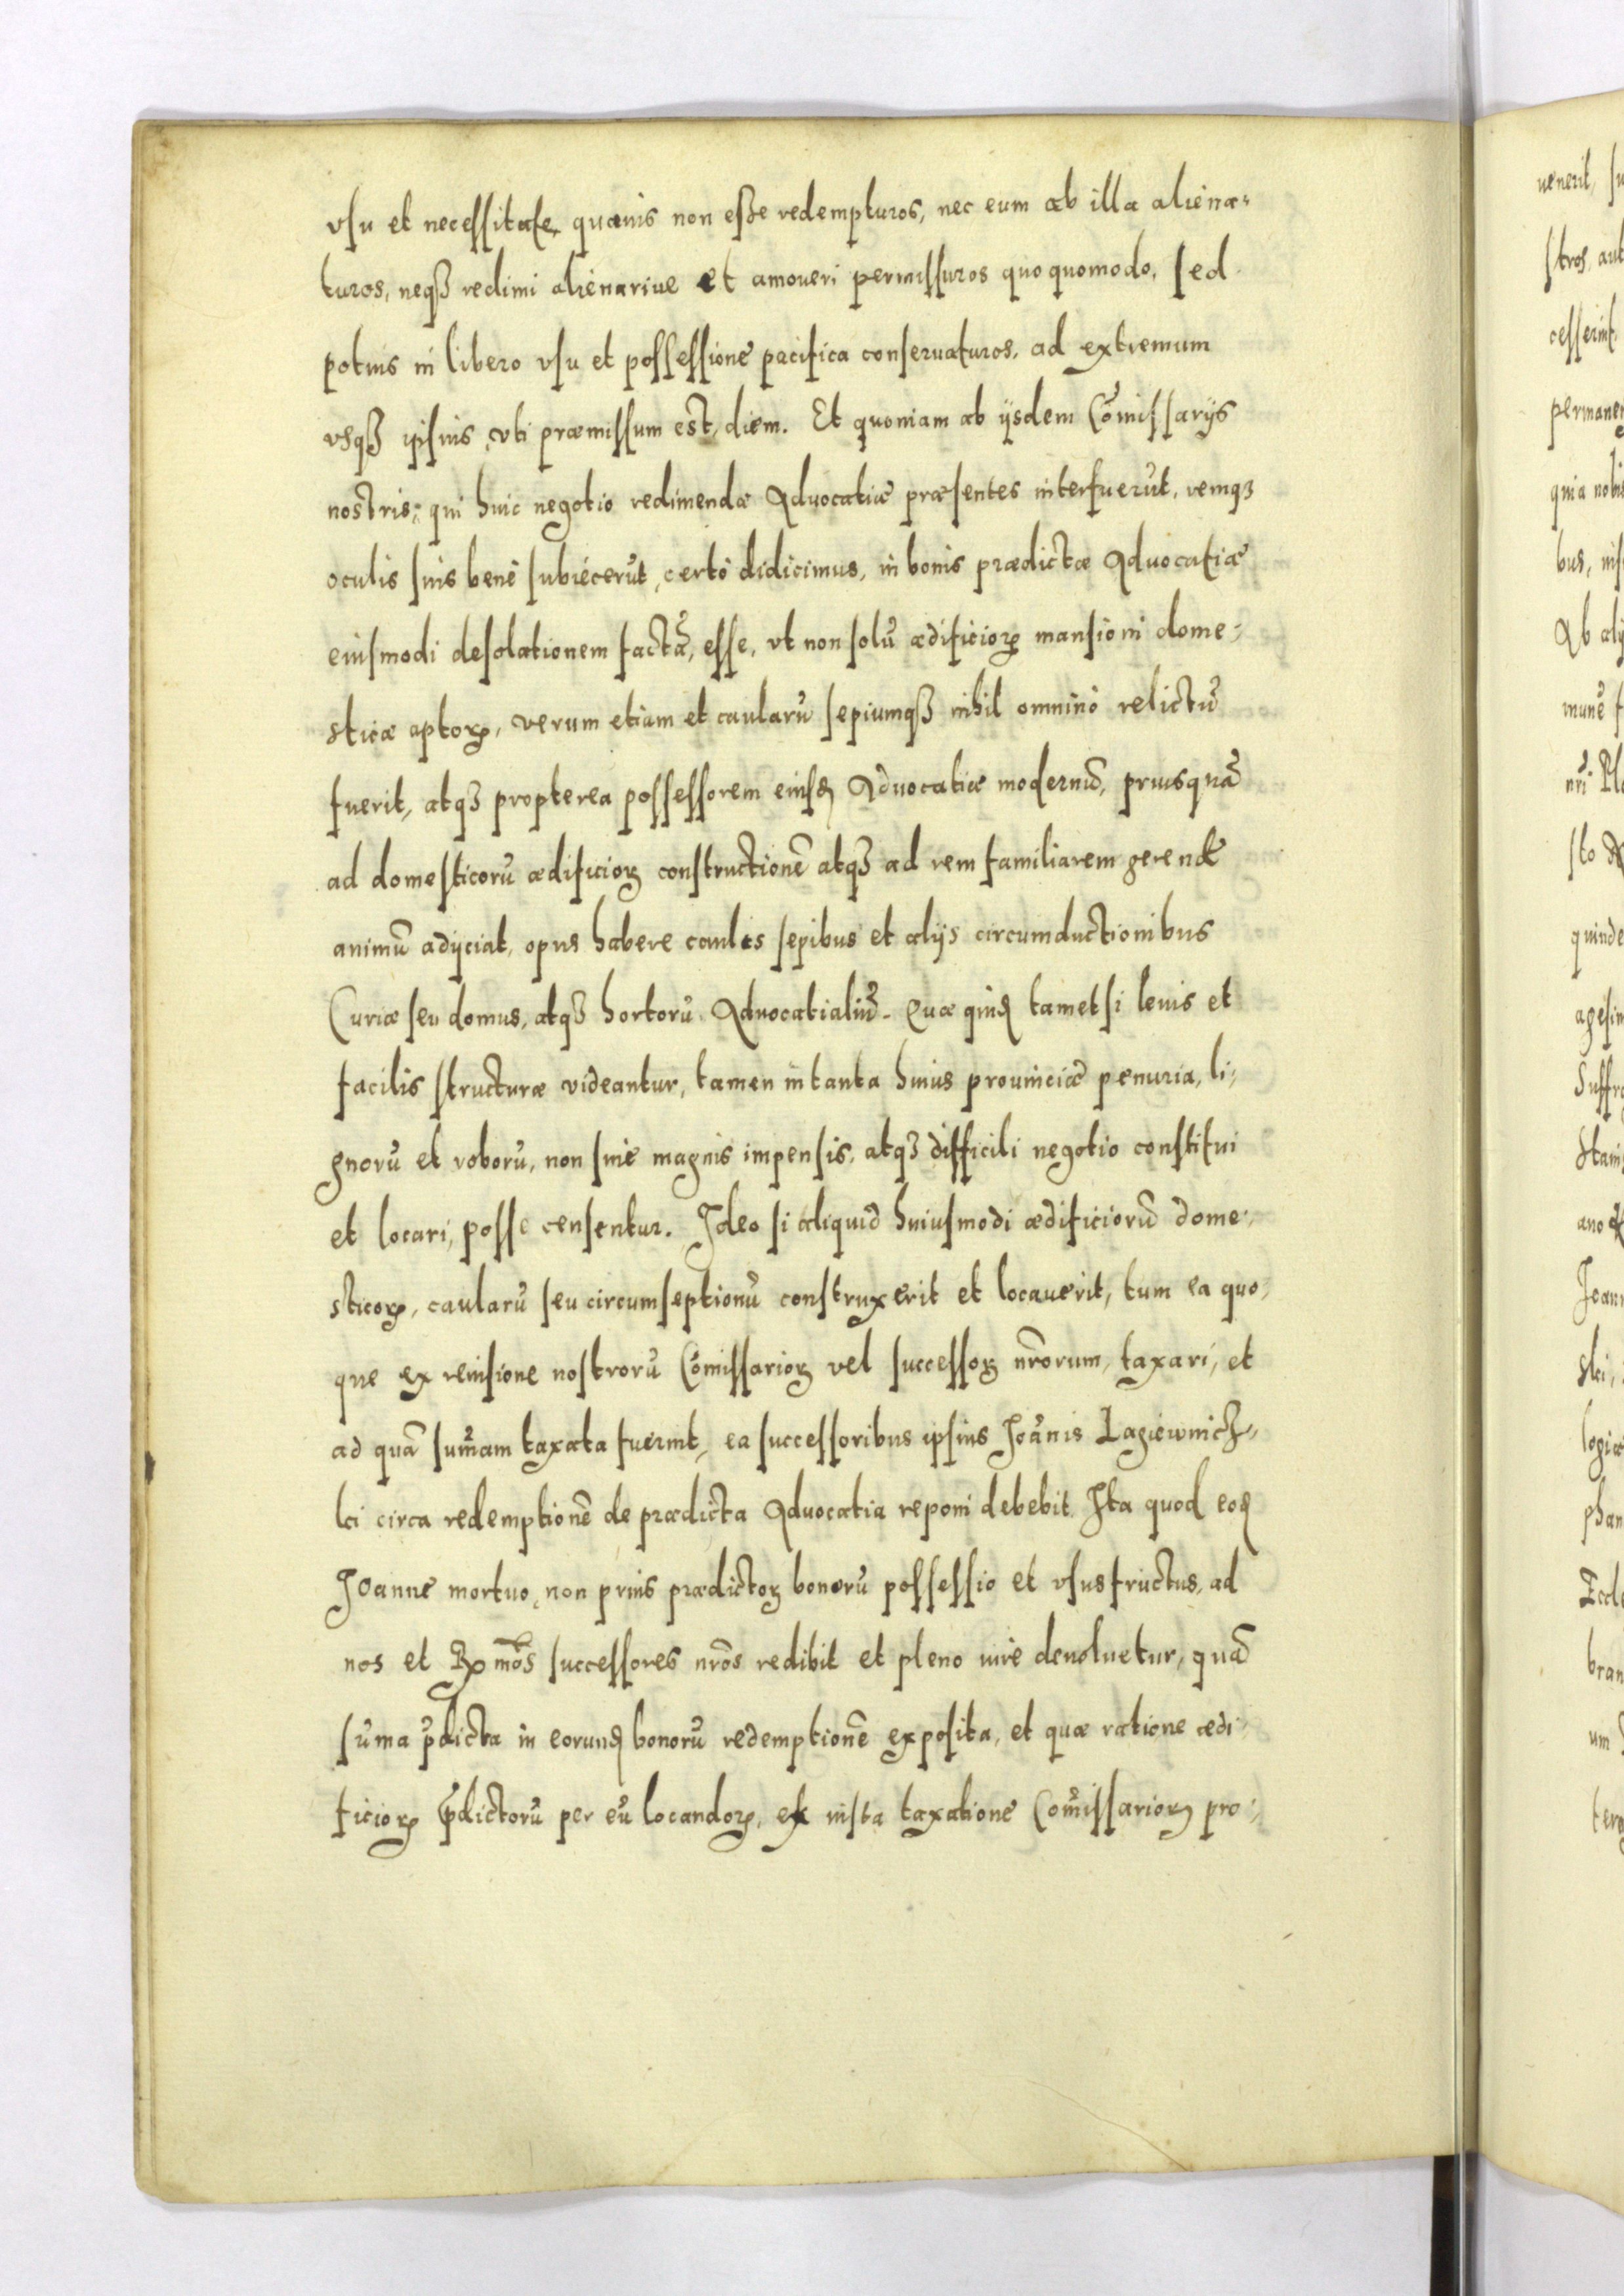 vsu et necessitate quauis non esse redempturos, nec eum ab illa aliena-
turos, neqꝫ redimi alienariue et amoueri permissuros quoquomodo, sed
potius in libero vsu et possessione pacifica conseruaturos, ad extremum
vsqꝫ ipsius, vti præmissum est, diem. Et quoniam ab ijsdem Cõmissarijs
nostris, qui huic negotio redimendæ Aduocatiæ præsentes interfuerũt, remqꝫ
oculis suis benè subiecerũt, certò didicimus, in bonis prædictæ Aduocatiæ
eiusmodi desolationem factã, esse, vt non solũ ædificioꝝ mansioni dome-
sticæ aptoꝝ, verum etiam et caularũ sepiumqꝫ nihil omninò relictũ
fuerit, atqꝫ propterea possessorem eiusđ Aduocatiæ modernũ, priusquã
ad domesticorũ ædificioꝝ constructionẽ atqꝫ ad rem familiarem gerendã
animũ adijciat, opus habere caulis sepibus et alijs circumductionibus
Curiæ seu domus, atqꝫ hortorũ Aduocatialiũ. Quæ quiđ tametsi leuis et
facilis structuræ videantur, tamen in tanta huius prouinciæ penuria, li-
gnorũ et roborũ, non sine magnis impensis, atqꝫ difficili negotio constitui
et locari, posse censentur. Ideo si aliquid huiusmodi ædificiorũ dome-
sticoꝝ, caularũ seu circumseptionũ construxerit et locauerit, tum ea quo-
que ex reuisione nostrorũ Cõmissarioꝝ vel successoꝝ nr̃orum, taxari, et
ad quã sum̃am taxata fuerint, ea successoribus ipsius Joãnis Lagiewnicz-
ki circa redemptionẽ de prædicta Aduocatia reponi debebit. Ita quod eođ
Joanne mortuo, non prius prædictoꝝ bonorũ possessio et vsusfructus, ad
nos et Rx̃mos successores nr̃os redibit et pleno iure deuoluetur, quã
sũma p̃dicta in eorunđ bonorũ redemptionẽ exposita, et quæ ratione ædi-
ficioꝝ p̃dictorũ per eũ locandoꝝ, ex iusta taxatione Com̃issarioꝝ pro-